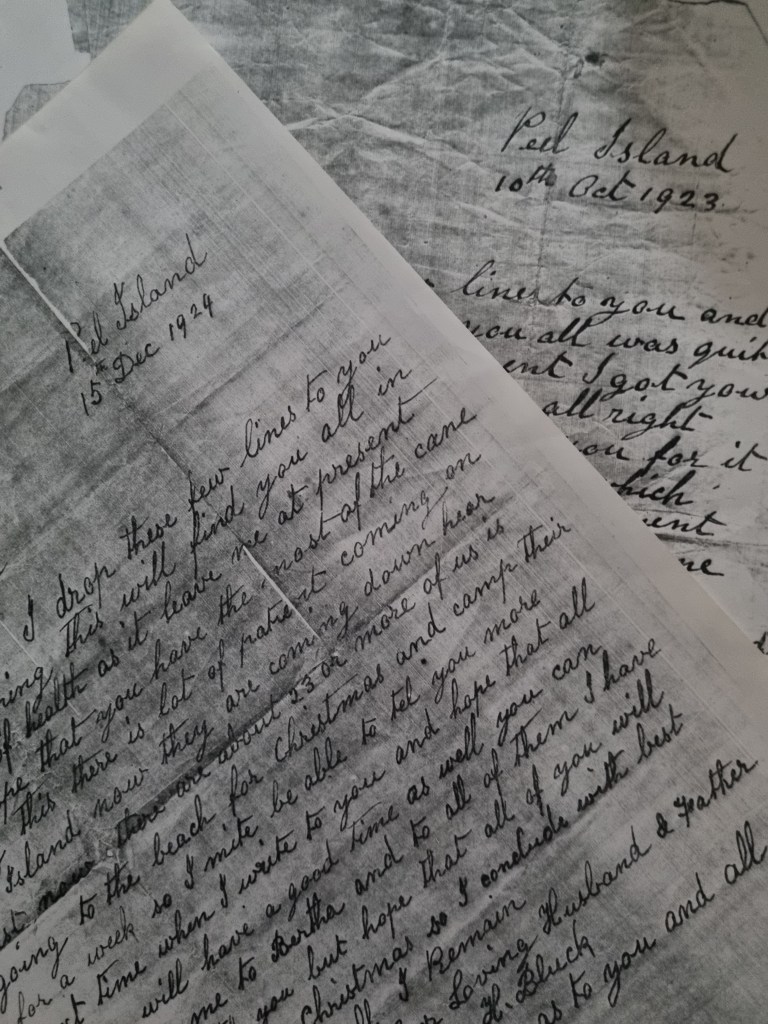 Peel Island
10th Oct 1923
lines to you and
you all was quit
ent I got you
all right
you for it
which
ent
me
Peel Island
15th Dec 1924
I drop these few lines to you
ing this will find you all in
of health as it leave me at present
pe that you have the most of the cane
this there is lot of patient coming on
Island now they are coming down hear
st now there are about 23 or more of us is
going to the beach for Christmas and camp their
for a week so I mite be able to tel you more
t time when I write to you and hope that all
will have a good time as well you can
me to Bertha and to all of them I have
you but hope that all of you will
Christmas so I conclude with best
I Remain
Loving Husband & Father
H. Bluck
as to you and all